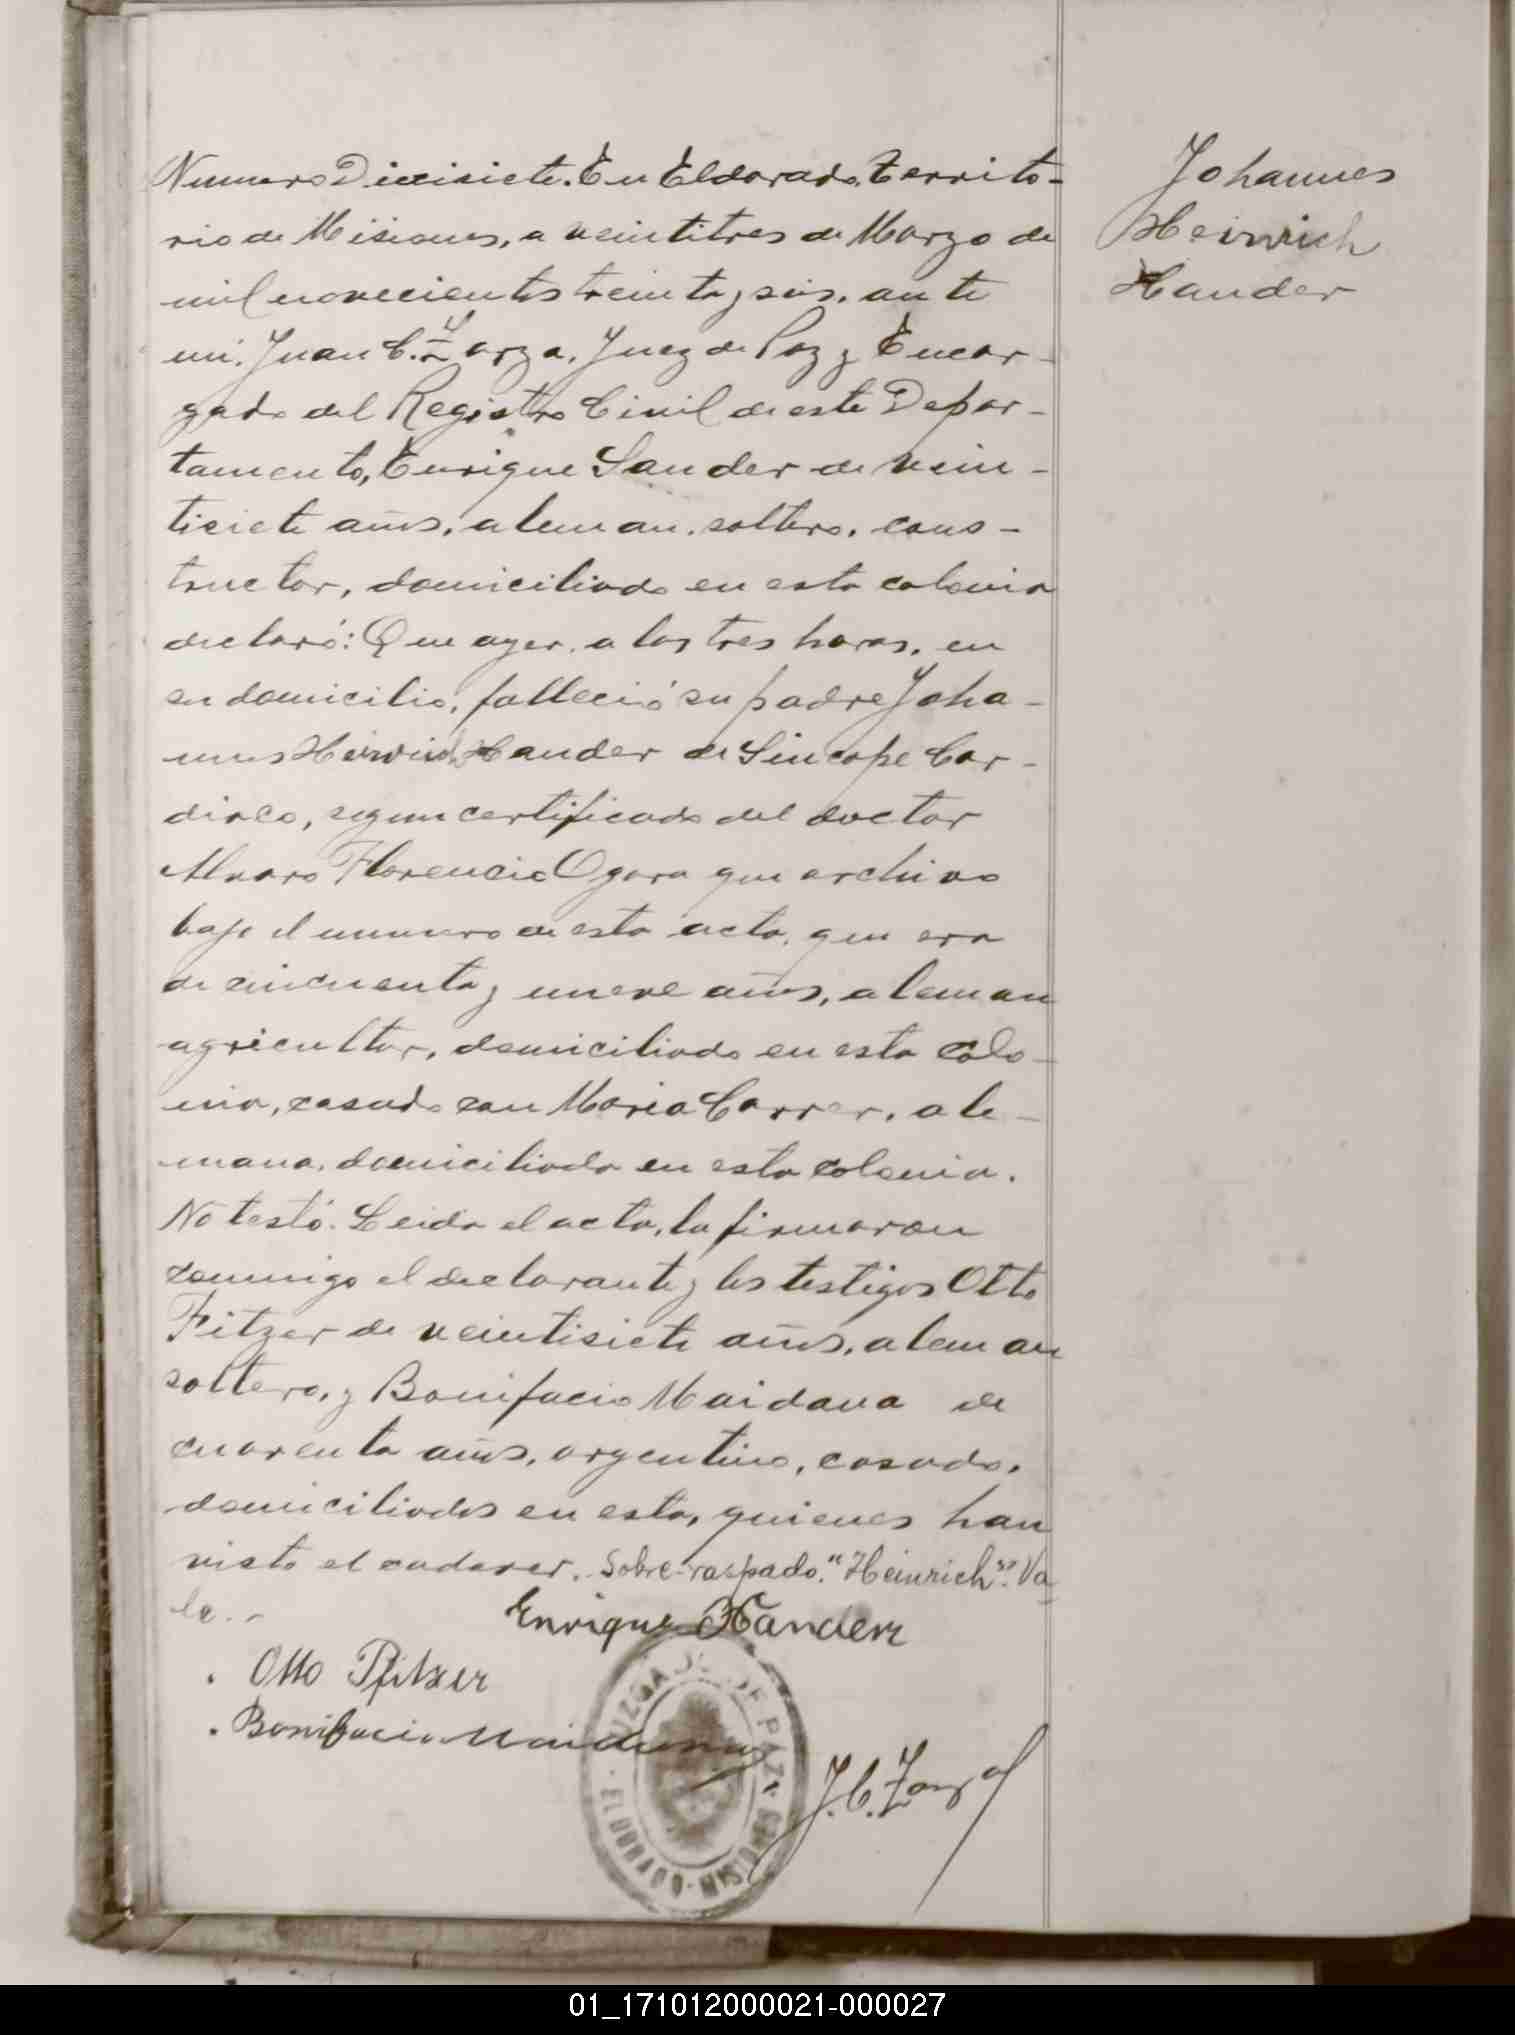 Numero Diecisiete. En Eldorado, Territo-
rio de Misiones, a veintitres de Marzo de
mil novecientos treinta y seis, ante
mi, Juan C. Zarza, Juez de Paz y Encar-
gado del Registro Civil de este Depar-
tamento, Enrique Sander de vein-
tisiete años, aleman, soltero, cons-
tructor, domiciliado en esta colonia
declaró: Que ayer, a las tres horas, en
su domicilio, falleció su padre Joha-
nnes Heinrich Xander de Sincope Car-
diaco, segun certificado del doctor
Alvaro Florencio Ogara que archivo
bajo el numero de esta acta, que era
de cincuenta y nueve años, aleman
agricultor, domiciliado en esta colo-
nia, casado con Maria Carrer, ale-
mana, domiciliada en esta colonia.
No testó. Leida el acta, la firmaron
conmigo el declarante y los testigos Otto
Fitzer de veintisiete años, aleman
soltero, y Bonifacio Maidana de
cuarenta años, argentino, casado,
domiciliados en esta, quienes han
visto el cadaver. Sobre-raspado: "Heinrich": Va-
le.-
Enrique Xander
Otto Pfitzer
Bonifacio Maidana
J. C. Zarza
JUZGADO DE PAZ
ELDORADO - MISIONES
Johannes
Heinrich
Xander
01_171012000021-000027